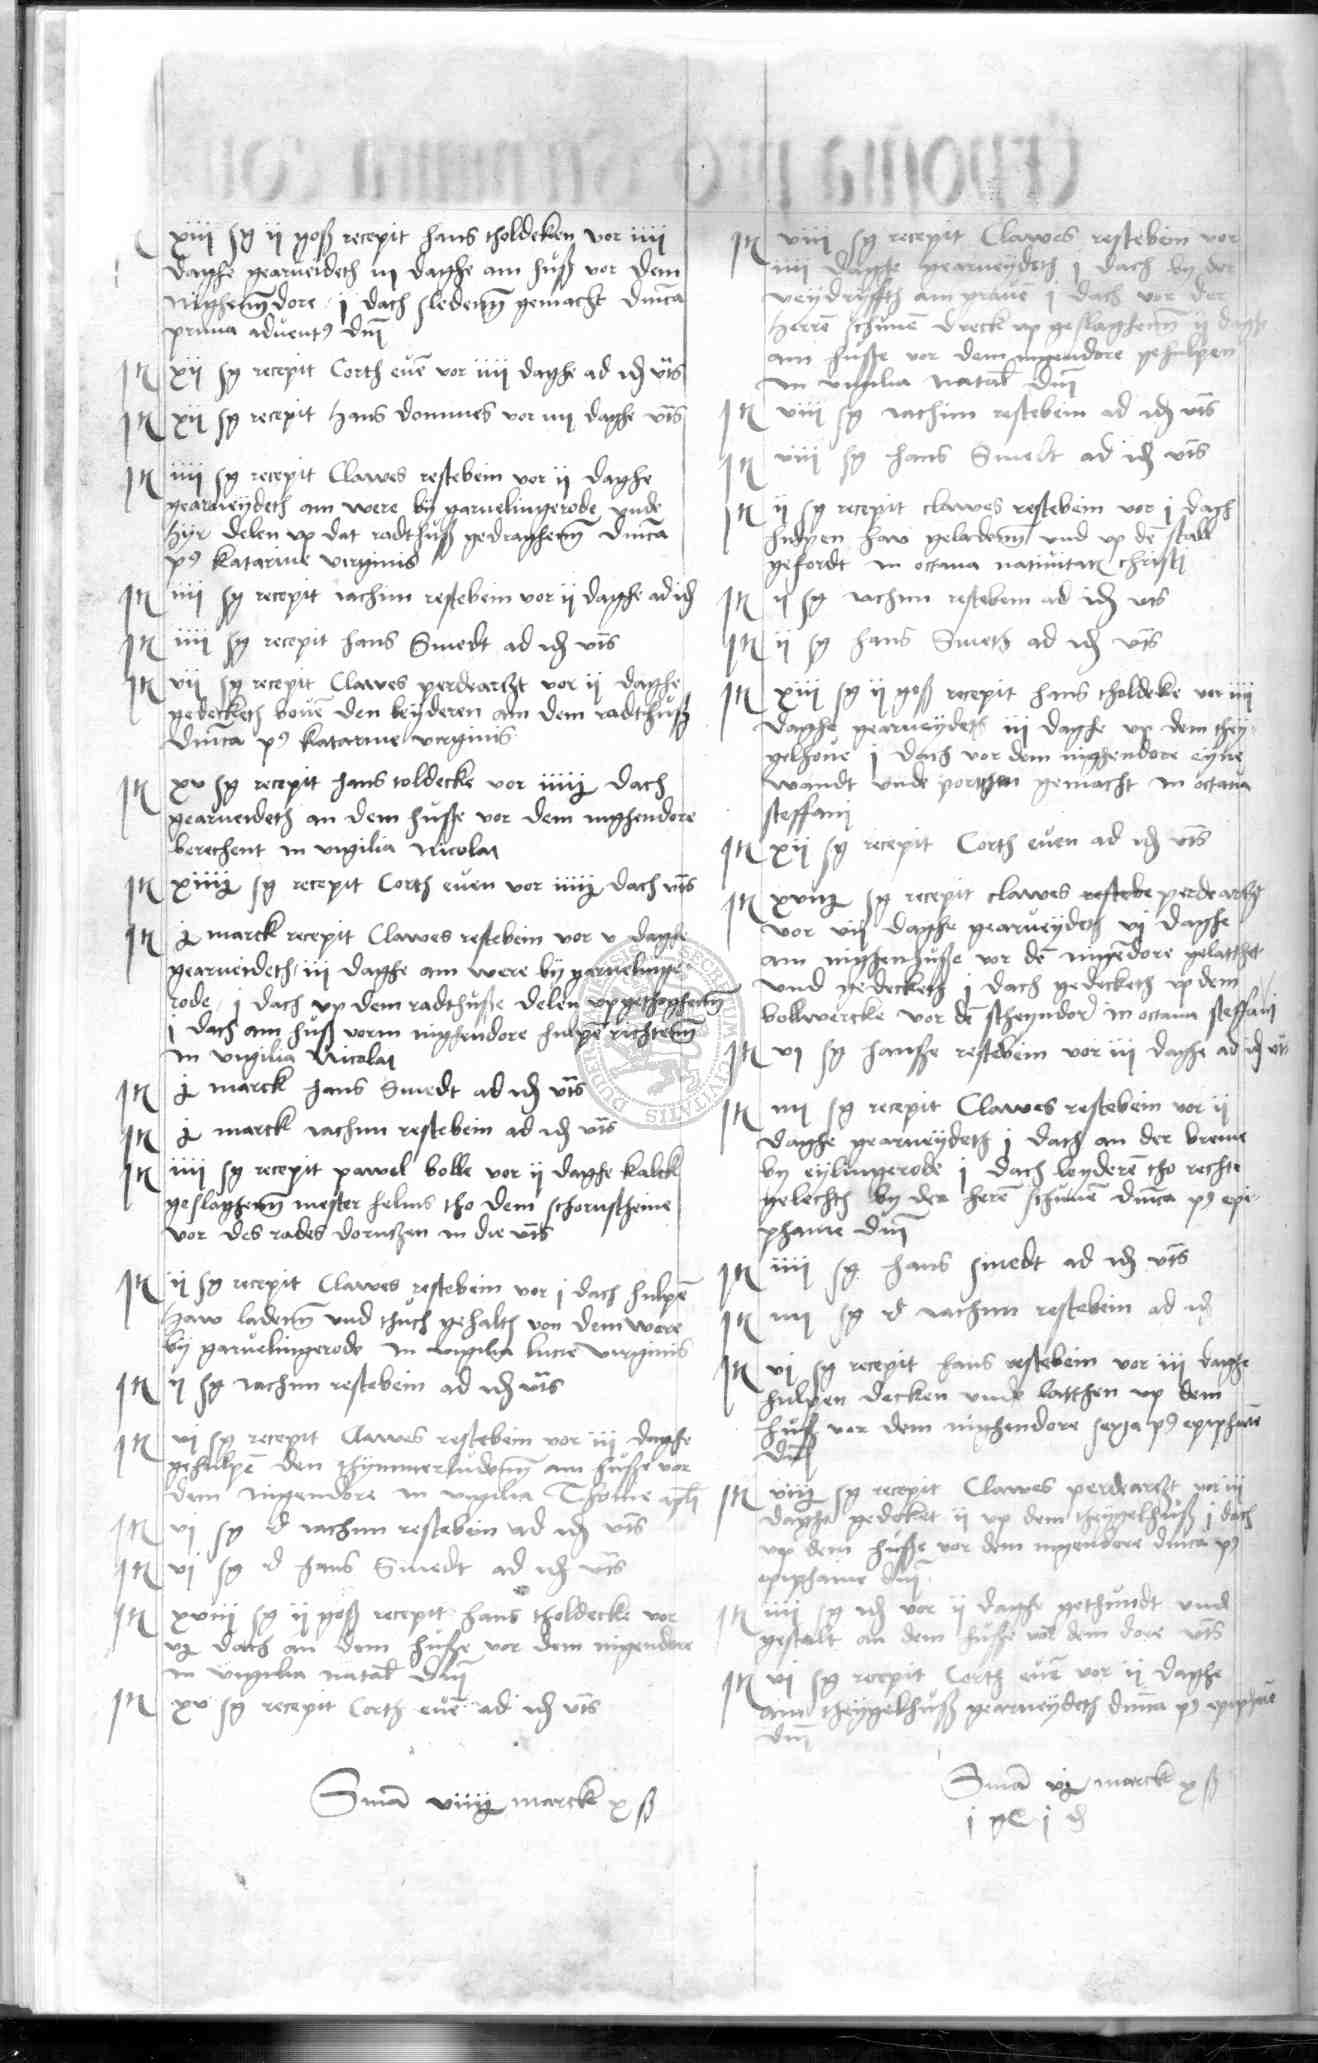 xiii sg ii goß recepit hans tholdeken vor iiii
daghe gearueideth iii daghe am huß vor dem
nighemdore i dach sledemn gemacht dnica
prima aduent9 dni
It xii sg recepit Corth euē vor iiii daghe ad id vts
It xii sg recepit Hans dommes vor iiii daghe vts
It iiii sg recepit Clawes restebein vor ii daghe
gearueydeth am were by garuelingerode vnde
hyr delen vp dat radthuß gedraghemn dnica
p9 katarine virginis
It iiii sg recepit iachim restebein vor ii daghe ad id
It iiii sg recepit hans Smedt ad id vts
It vii sg recepit Clawes perdeartzt vor ii daghe
gedecketh bouē den leyderen am dem radthuß
dnica p9 katarine virginis
It xv sg recepit hans toldecke vor iiii dach
gearueideth an dem husse vor dem nighendore
berechent in vigilia Nicolai
It xiiii sg recepit Corth euen vor iiii dach vts
It marck recepit Clawes restebein vor v daghe
gearueideth iii daghe am were by garuelinge
rode i dach vp dem radthuße delen vpgethoghemn
i dach am huß vorm nighendore hulpē richtemn
in vigilia Nicolai
It marck hans Smedt ad id vts
It marck iachim restebein ad id vts
It iiii sg recepit pawel bolle vor ii daghe kalck
geslaghemn mester helms tho dem schornsteine
vor des rades dorntzen in die vts
It ii sg recepit Clawes restebein vor i dach hulpē
haw lademn vnd thuch gehalth von dem were
by garuelingerode in vigilia lucie virginis
It ii sg iachim restebein ad id vts
It vi sg recepit Clawes restebein vor iii daghe
gehulpē den thymmerludemn am husse vor
dem nigendore in vigilia Thome apli
It vi sg rt iachim restebein ad id vts
It vi sg rt hans Smedt ad id vts
It xviii sg ii goß recepit hans tholdecke vor
dach an dem husse vor dem nigendore
in vigilia natal dni
It xv sg recepit Corth euē ad id vts
Sma viiii marck x ß
It viii sg recepit Clawes restebein vor
iiii daghe gearueydeth i dach by der
am grauē i dach vor der
herrē schunē dreck vp geslaghemn ii daghe
am huße vor dem nigendore gehulpen
in vigilia natal dni
It viii sg iachim restebein ad id vts
It viii sg hans Smedt ad id vts
It ii sg recepit clawes restebein vor i dach
hulpen haw gelademn vnd vp dē stall
gefordt in octaua natiuitatis christi
It ii sg iachim restebein ad id vts
It ii sg hans Smeth ad id vts
It xiii sg ii goß recepit hans tholdeke vor iiii
daghe gearueydeth iii daghe vp dem they
gelhoue i dach vor dem nighendore eyne
wandt vnde porthen gemacht in octaua
steffani
It xii sg recepit Corth euen ad id vts
It sg recepit clawes restebe perdeartzt
vor vii daghe gearueydeth vi daghe
am nighenhusse vor dē nigēdore gelatthet
vnd gedecketh i dach gedecketh vp dem
bollwercke vor dē steyndor in octaua steffani
It vi sg hansse restebein vor iii daghe ad id vts
It iiii sg recepit Clawes restebein vor ii
daghe gearueydeth i dach an der breme
by eylingerode i dach leyderē tho rechte
gelechth by der herē schunē dnica p9 epi
phanie dni
It iiii sg hans smedt ad id vts
It iiii sg rt iachim restebein ad id
It vi sg recepit hans restebein vor iii daghe
hulpen decken vnde latthen vp dem
huß vor dem nighendore p9 epiphanie
dni
It sg recepit Clawes perdeartzt vor iii
daghe gedeket ii vp dem theygelhuß i dach
vp dem husse vor dem nigendore dnica p9
epiphanie dni
It iiii sg id vor ii daghe gethundt vnd
gestalt an dem husse vor dem dore vts
It vi sg recepit Corth euē vor ii daghe
am theygelhuß gearueydeth dnica p9 epiphanie
dni
Sma marck x ß